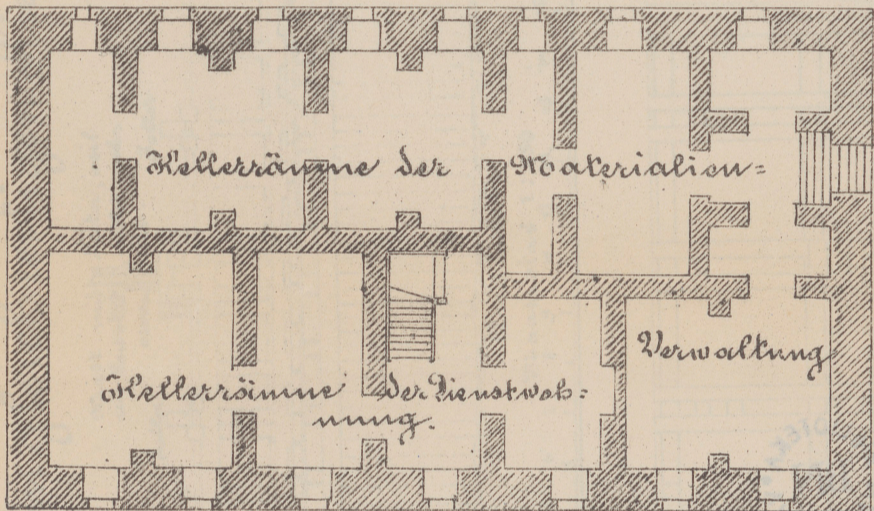 Kellerräume der Materialien=
Verwaltung
Kellerräume der Dienstwoh=
nung.